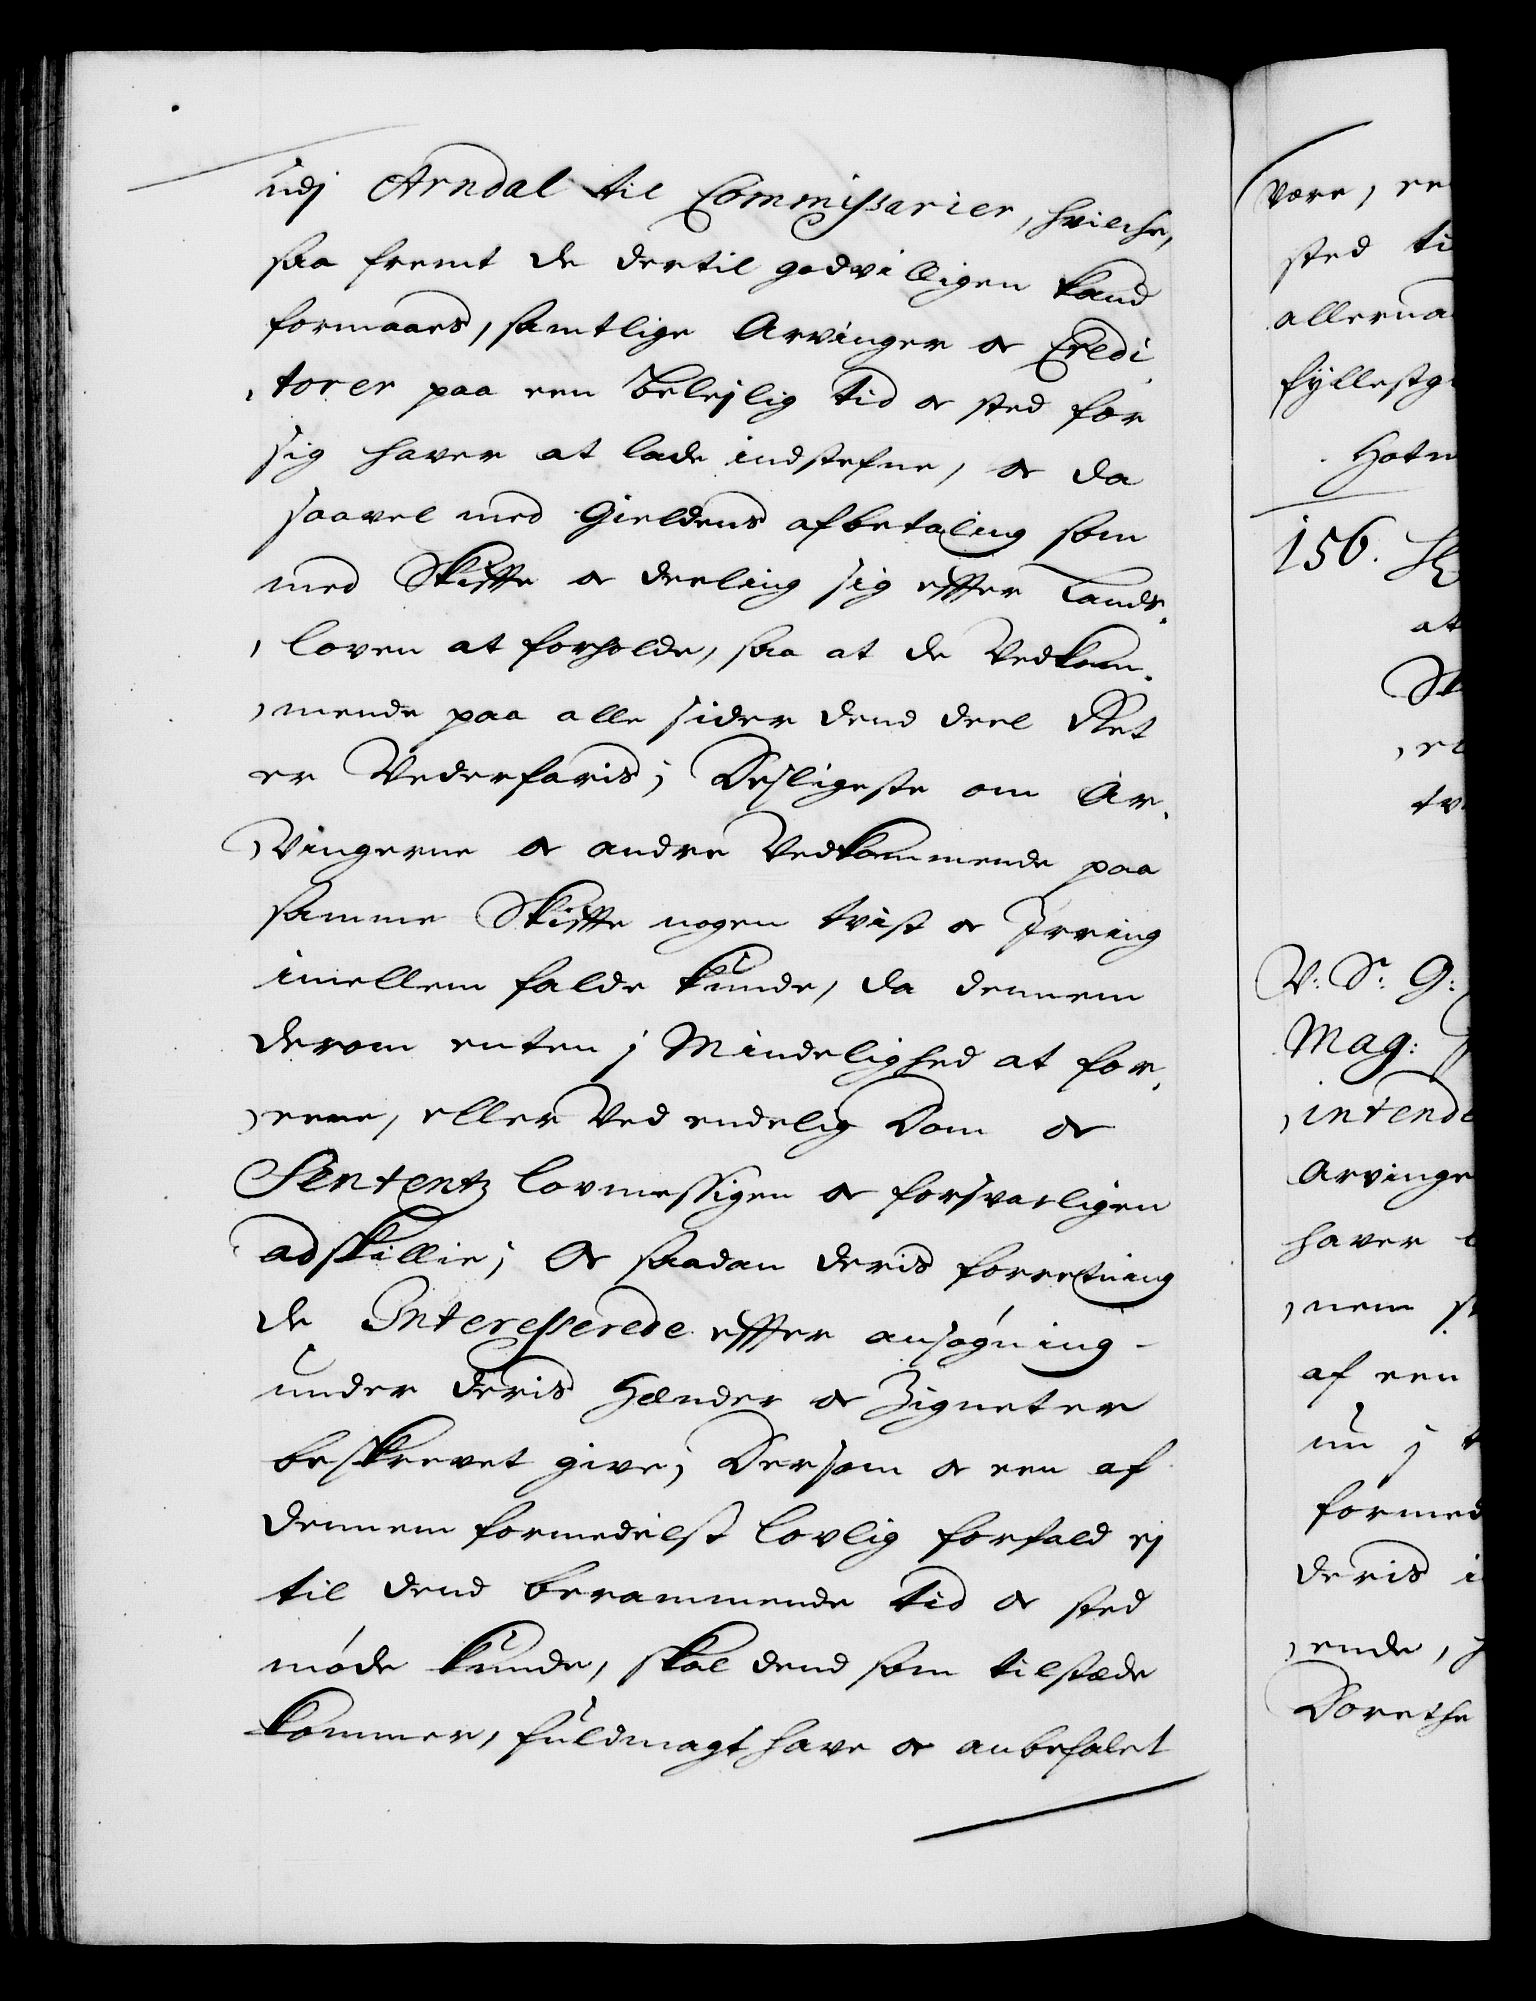 udj Arndal til Commissarier, hvilche,
saa fremt de dertil godvilligen kand
formaaes, samtlige Arvinger og Credi
torer paa een beleilig tid og sted for
sig haver at lade indstefne, og da
saavel med Gieldens afbetaling som
med Skiffte og deeling sig effter Lands-
loven at forholde, saa at de Vedkom-
mende paa alle sider dend deel Ret
er Vederfaris; Desligeste om Ar-
vingerne og andre Vedkommende paa
samme Skiffte nogen tvist og Irring
imellem falde kunde, da dennem
derom enten j Mindelighed at for-
eene, eller ved endelig Dom og
Sententz lovmessigen og forsvarligen
adskillie; Og saadan deris forretning
de Interesserede effter ansøgning
under deris Hænder og Zigneter
beskrevet give; Dersom og een af
dennem formedelst lovlig forfald ej
til dend berammende tid og sted
møde kunde, skal dend som tilstæde
kommer, fuldmagt have og anbefalet
være, ee
sted ti
allerna
fyllestg
Hafn
156.
at
Sk
V: S: G:
Mag:
intende
Arvinge
haver
nem
af een
nu j
formed
deris
ende,
Dorethe